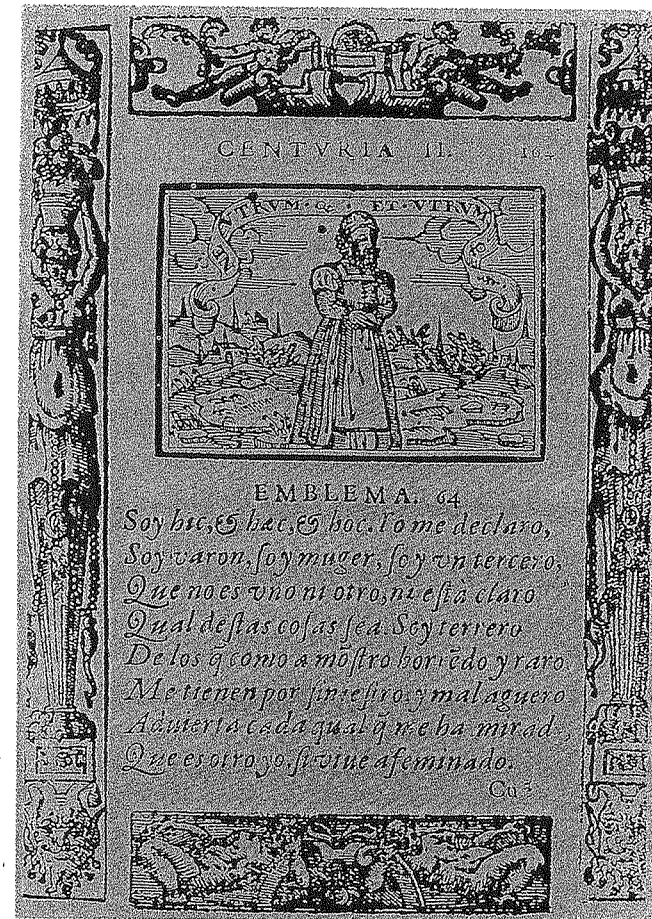 CENTVRIA II. 164
NEVTRVMQ́ · ET · VTRVMQ́
EMBLEMA. 64
Soy hic, & hæc, & hoc. Yo me declaro,
Soy varon, soy muger, soy vn tercero,
Que no es vno ni otro, ni està claro
Qual destas cosas sea. Soy terrero
De los q̃ como a mõstro horrẽdo y raro
Me tienen por siniestro, y mal aguero
Aduierta cada qual q̃ me ha mirad
Que es otro yo, si viue afeminado.